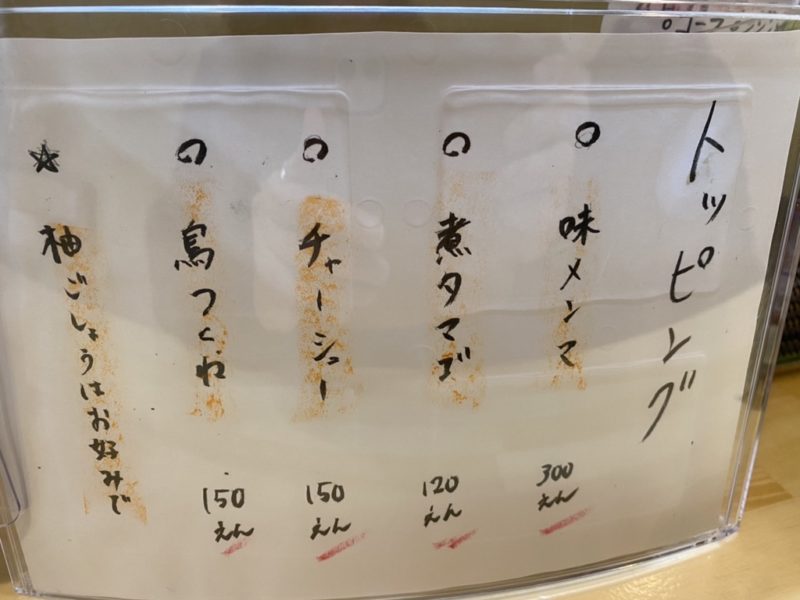 トッピング
○ 味メンマ 300えん
○ 煮タマゴ 120えん
○ チャーシュー 150えん
○ 鳥つくね 150えん
☆ 柚ごしょうはお好みで